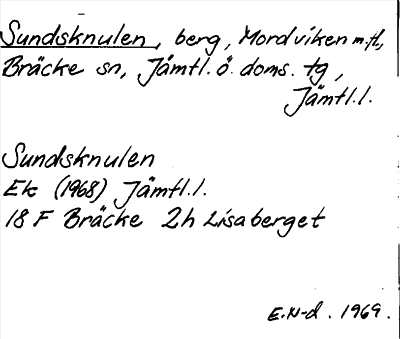 Sundsknulen, berg, Mordviken m.fl,
Bräcke sn, Jämtl. ö. doms. tg,
Jämtl.l.
Sundsknulen
Ek (1968) Jämtl.l.
18 F Bräcke 2h Lisaberget
E.N-d. 1969.